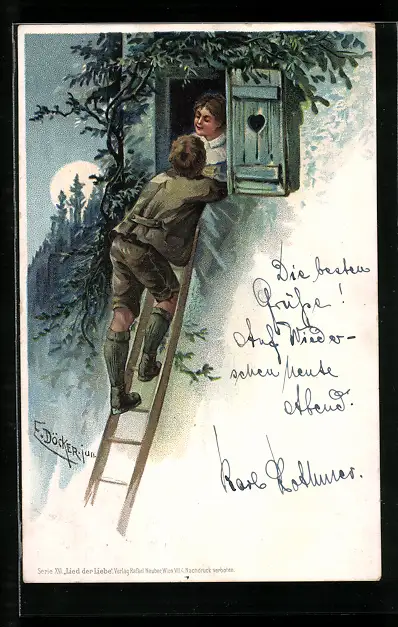 Die besten
Grüße!
Auf Wieder-
sehen heute
Abend.
Karl
E. DÖCKER · jun.
Serie XVI. „Lied der Liebe“. Verlag Rafael Neuber, Wien VII. Nachdruck verboten.